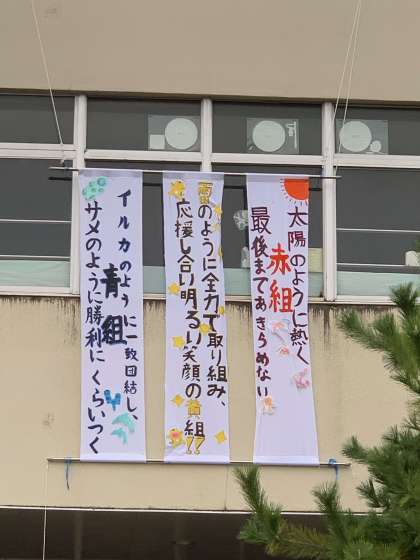 太陽のように熱く
赤組
最後まであきらめない
雷のように全力で取り組み、
応援し合い明るい笑顔の黄組!!
イルカのように一致団結し、
青組
サメのように勝利にくらいつく